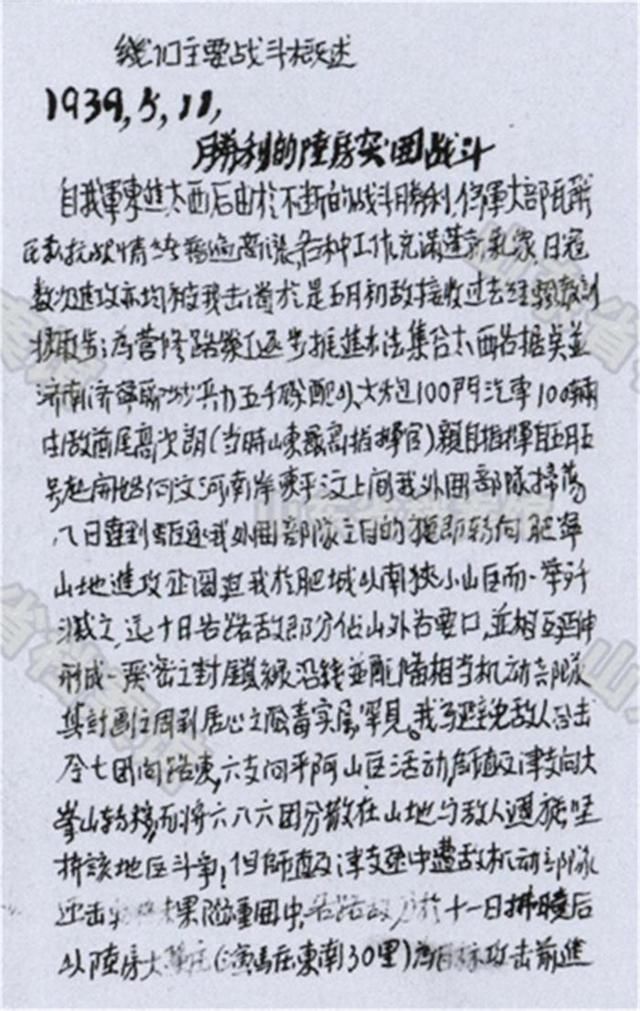 我们主要战斗概述
1939,5,11,
胜利的陸房突囲战斗
自我軍東進太西后由於不断的战斗勝利,伪軍大部瓦解
民衆抗战情绪 高漲,各种工作充满 新氣象,日冠
数次進攻亦均被我击 於是五月初敌接收过去经 教訓
採取步 为营修路築 逐步推進办法集合太西各据点並
济南济寧 兵力五千 配以大炮100門汽車100輛
由敌酋尾高次郎(当時山東最高指揮官)親自指揮自五月五
号起開始向汶河南岸東平汶上间我外囲部隊掃荡
八日達到 我外囲部隊之目的 即转向肥 
山地進攻企圖 我於肥城以南狹小山区而一举歼
滅之,迄十日各路敌即分佔山外各要口,並相互延伸
形成一严密之封鎖綫沿綫並配備相当机动部隊
其計画之周到居心之险毒实属罕見。我为避免敌人合击
令七团向路東,六支向平阿山区活动,師直及津支向大
峯山转移,而将六八六团分散在山地与敌人週旋,坚
持該地区斗争,但師直及津支途中遭敌机动部隊
迎击 果陷重囲中,各路敌 於十一日拂曉后
以陸房大 庄( 馬庄東南30里)为目标攻击前進